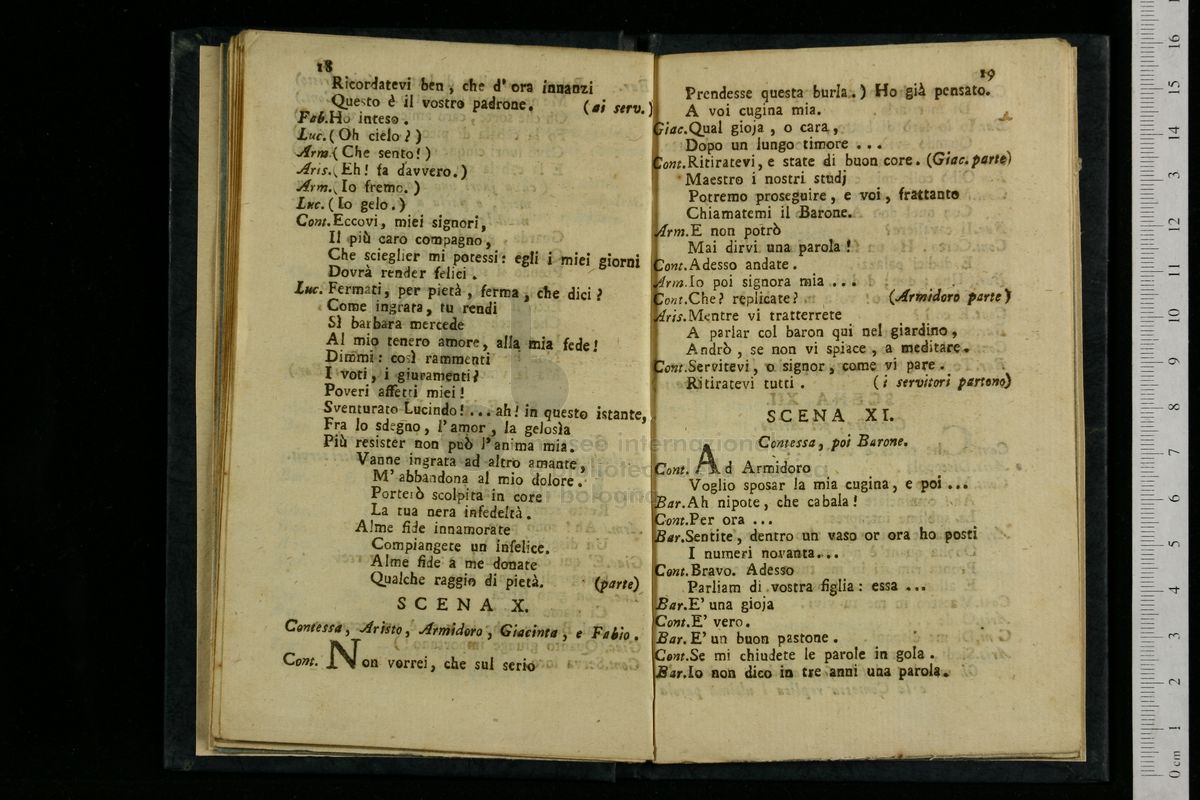 18
Ricordatevi ben, che d'ora innanzi
Questo è il vostro padrone. (ai serv.)
Fab. Ho inteso.
Luc. (Oh cielo?)
Arm. (Che sento!)
Aris. (Eh! fa davvero.)
Arm. (Io fremo.)
Luc. (Io gelo.)
Cont. Eccovi, miei signori,
Il più caro compagno,
Che scieglier mi potessi: egli i miei giorni
Dovrà render felici.
Luc. Fermati, per pietà, ferma, che dici?
Come ingrata, tu rendi
Sì barbara mercede
Al mio tenero amore, alla mia fede!
Dimmi: così rammenti
I voti, i giuramenti?
Poveri affetti miei!
Sventurato Lucindo! ... ah! in questo istante,
Fra lo sdegno, l'amor, la gelosìa
Più resister non può l'anima mia.
Vanne ingrata ad altro amante,
M'abbandona al mio dolore.
Porterò scolpita in core
La tua nera infedeltà.
Alme fide innamorate
Compiangete un infelice.
Alme fide a me donate
Qualche raggio di pietà. (parte)
SCENA X.
Contessa, Aristo, Armidoro, Giacinta, e Fabio.
Cont. Non vorrei, che sul serio
19
Prendesse questa burla.) Ho già pensato.
A voi cugina mia.
Giac. Qual gioja, o cara,
Dopo un lungo timore ...
Cont. Ritiratevi, e state di buon core. (Giac. parte)
Maestro i nostri studj
Potremo proseguire, e voi, frattanto
Chiamatemi il Barone.
Arm. E non potrò
Mai dirvi una parola!
Cont. Adesso andate.
Arm. Io poi signora mia ...
Cont. Che? replicate? (Armidoro parte)
Aris. Mentre vi tratterrete
A parlar col baron qui nel giardino,
Andrò, se non vi spiace, a meditare.
Cont. Servitevi, o signor, come vi pare.
Ritiratevi tutti. (i servitori partono)
SCENA XI.
Contessa, poi Barone.
Cont. Ad Armidoro
Voglio sposar la mia cugina, e poi ...
Bar. Ah nipote, che cabala!
Cont. Per ora ...
Bar. Sentite, dentro un vaso or ora ho posti
I numeri novanta...
Cont. Bravo. Adesso
Parliam di vostra figlia: essa ...
Bar. E' una gioja
Cont. E' vero.
Bar. E' un buon pastone.
Cont. Se mi chiudete le parole in gola.
Bar. Io non dico in tre anni una parola.
museo internazionale
biblioteca
bologna
0 cm 1 2 3 4 5 6 7 8 9 10 11 12 13 14 15 16